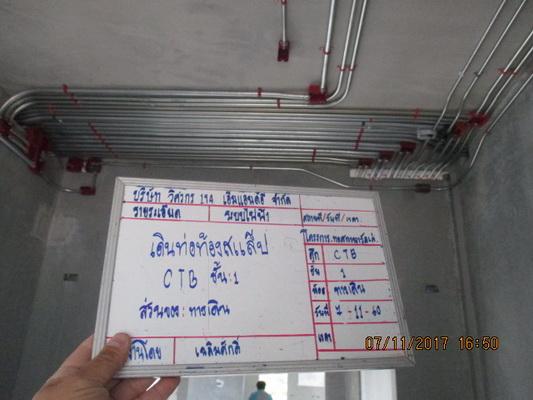 บริษัท วิศวกร 194 เอ็มแอนด์อี จำกัด
รายละเอียด ระบบไฟฟ้า สถานที่/วันที่/เวลา
เดินท่อท้องสแล็ป
CTB ชั้น:1
ส่วนของ: ทางเดิน
โครงการ:
ตึก CTB
ชั้น 1
ห้อง ทางเดิน
วันที่ 7-11-60
เวลา
งานโดย เฉลิมศักดิ์
07/11/2017 16:50